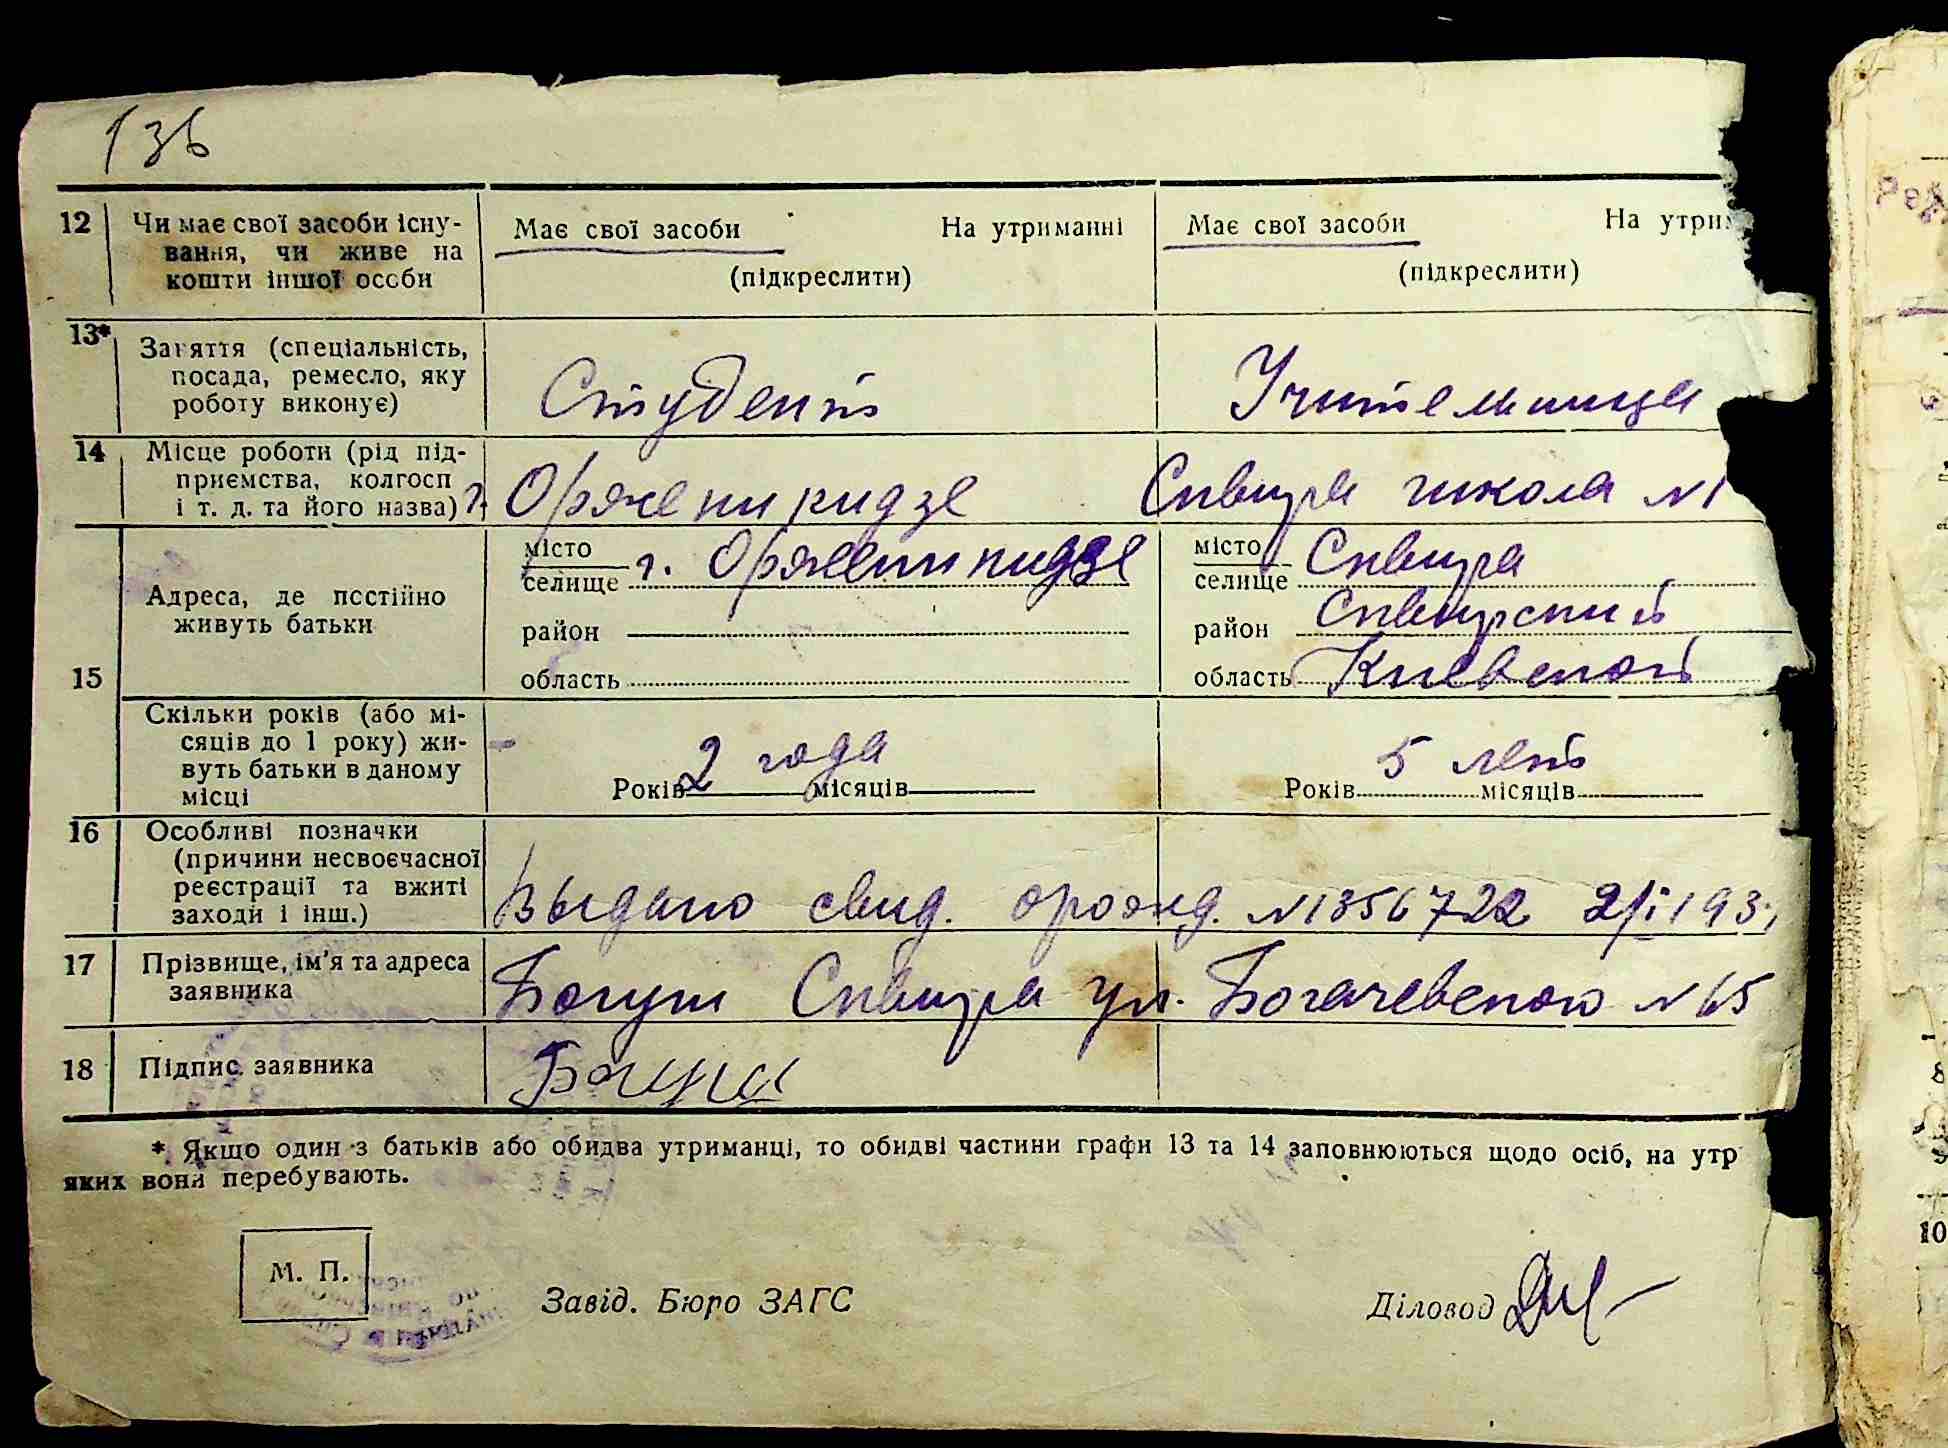 136
12 Чи має свої засоби існу- Має свої засоби На утриманні Має свої засоби На утрим
вання, чи живе на
кошти іншої особи (підкреслити) (підкреслити)
13* Заняття (спеціальність,
посада, ремесло, яку Студент Учительница
роботу виконує)
14 Місце роботи (рід під-
приємства, колгосп
і т. д. та його назва) г. Орженикидзе Сквира школа №1
місто г. Орженикидзе місто Сквира
селище селище
15 Адреса, де постійно
живуть батьки район район Сквирский
область область Киевской
Скільки років (або мі-
сяців до 1 року) жи-
вуть батьки в даному 2 года 5 лет
місці Років місяців Років місяців
16 Особливі позначки
(причини несвоєчасної
реєстрації та вжиті
заходи і інш.) Выдано свид. орожд. №1356722 2/I 193
17 Прізвище, ім'я та адреса
заявника Богуш Сквира ул. Богачевского №65
18 Підпис заявника Богуш
* Якщо один з батьків або обидва утриманці, то обидві частини графи 13 та 14 заповнюються щодо осіб, на утр
яких вони перебувають.
М. П.
Завід. Бюро ЗАГС Діловод
10